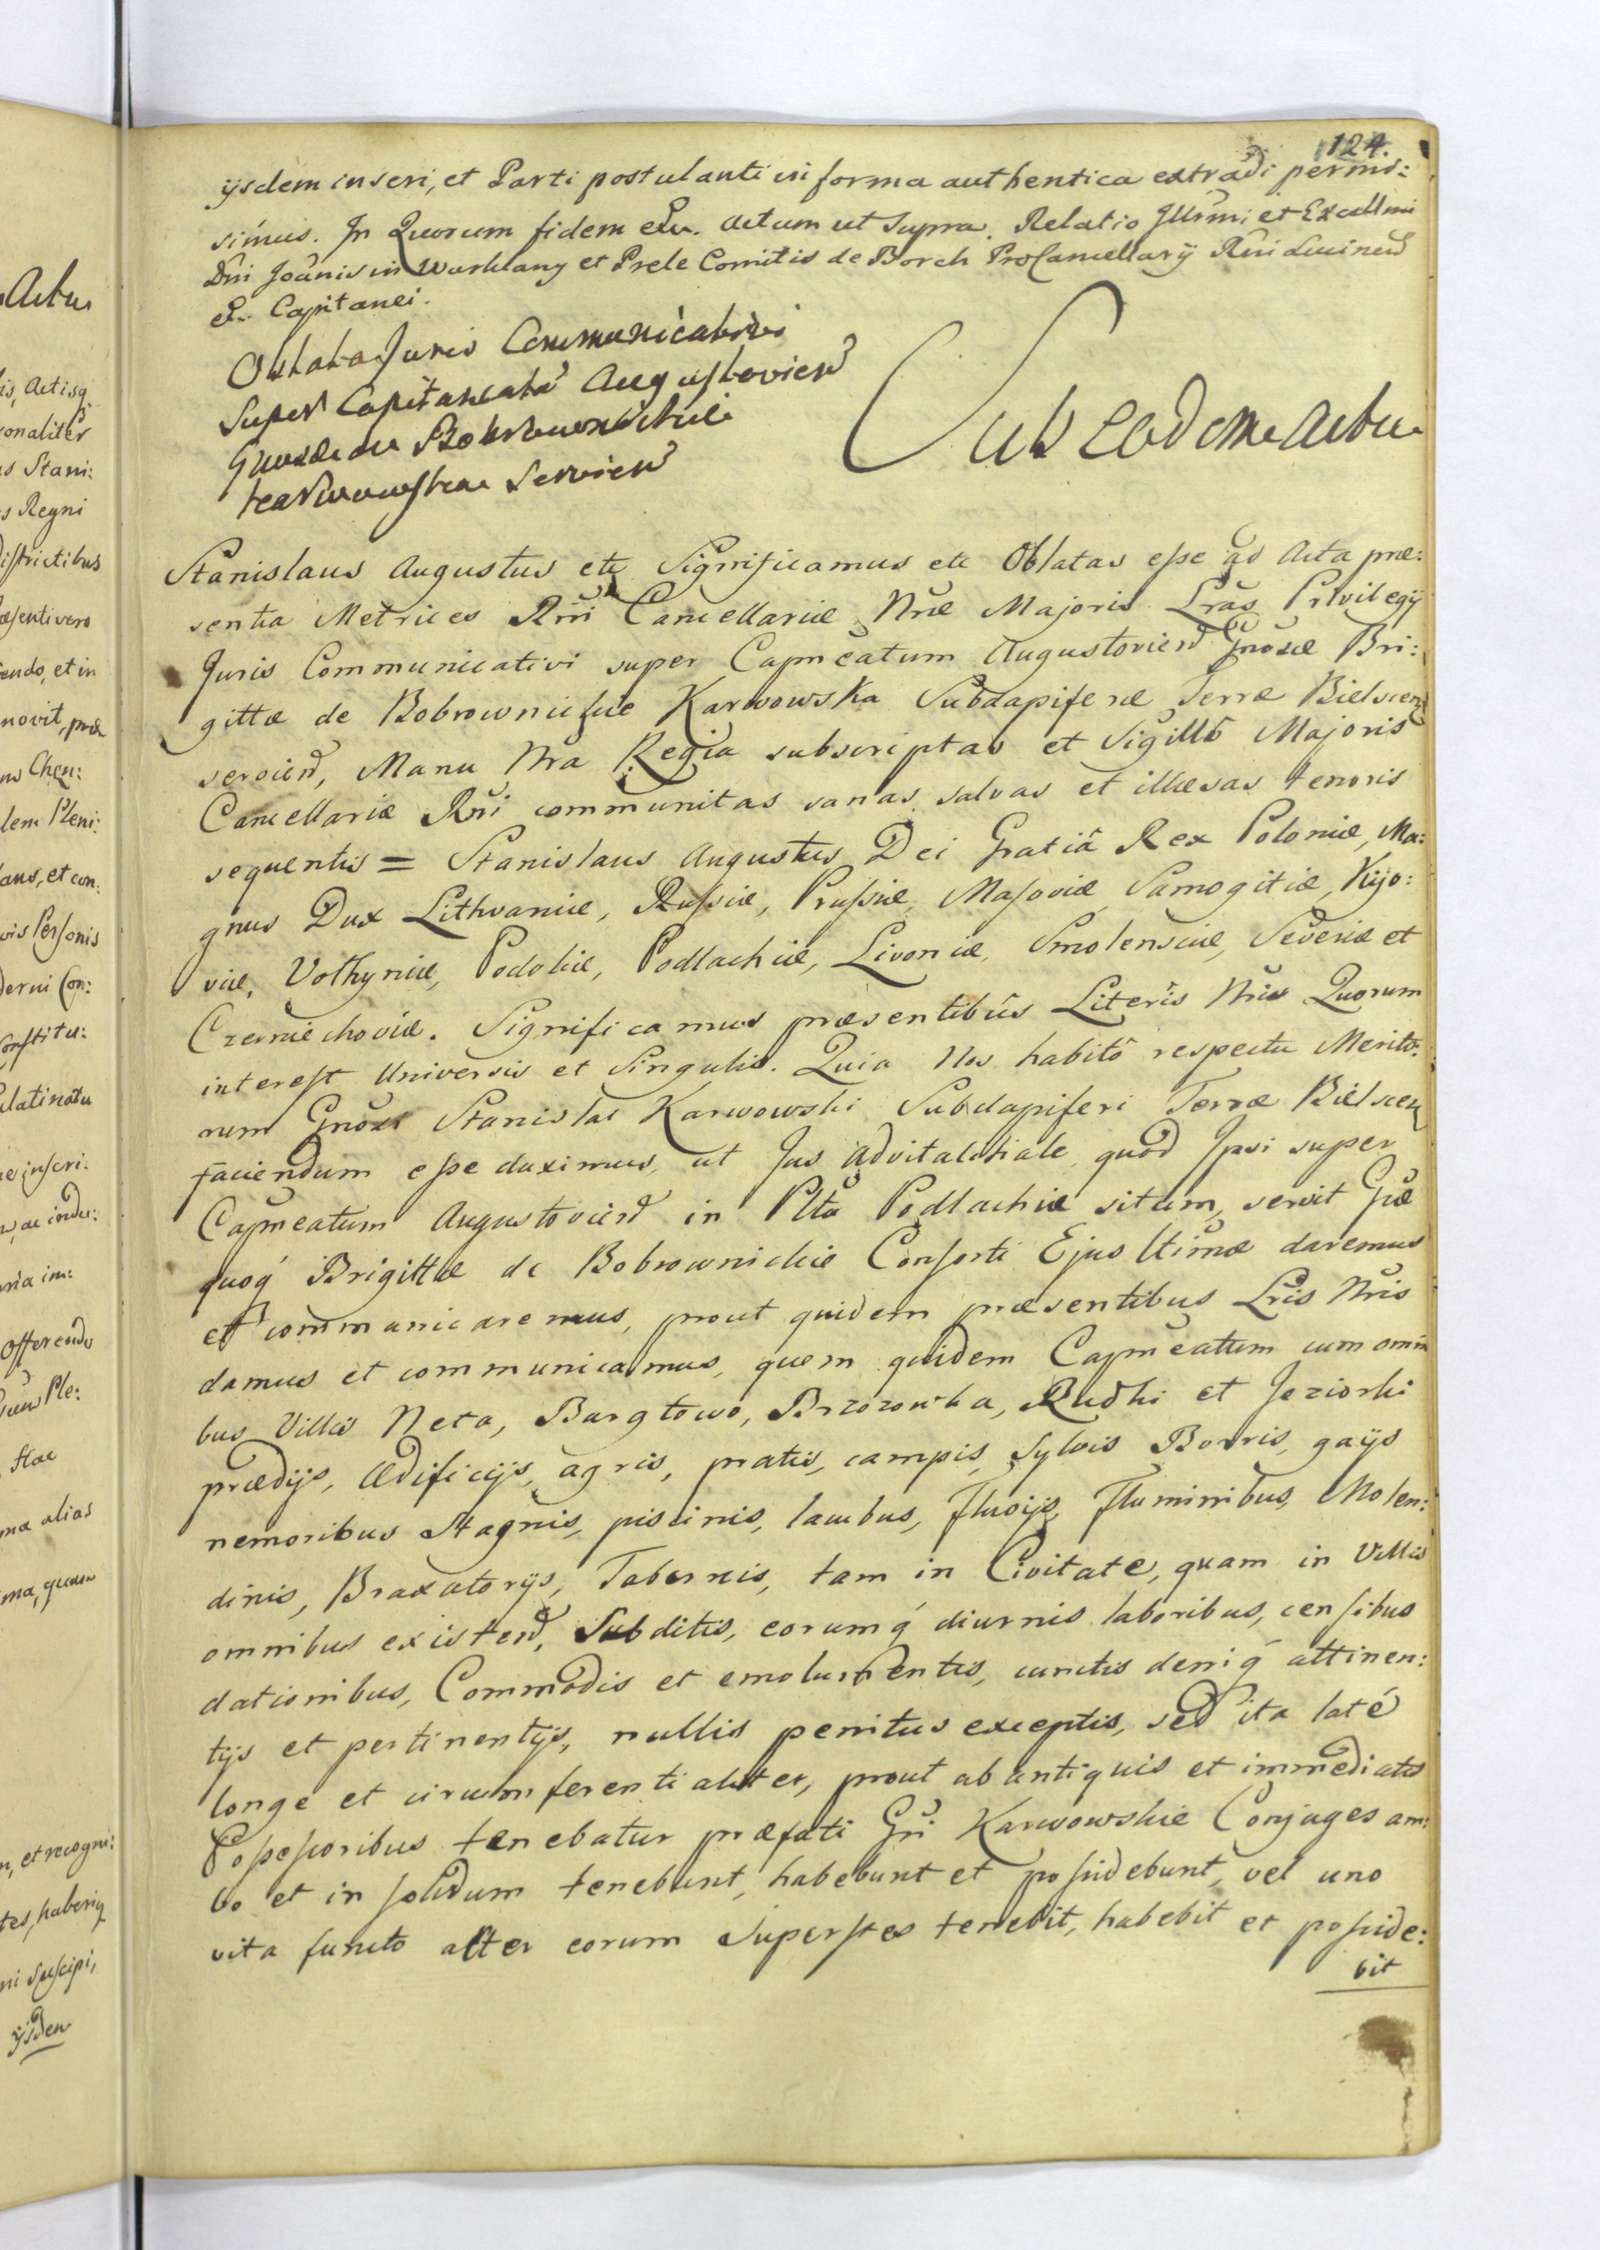 124.
ijsdem inseri, et Parti postulanti in forma authentica extradi permi:
simus. In Quorum fidem etc. Actum ut Supra. Relatio Illrmi et Excellmi
Dni Joãnis in Warklany et Prele Comitis de Borch ProCancellarij Rni Lucinen
etc. Capitanei.
Oblata Juris Communicativi
Super Capitaneatũ Augustovien
Gnosae de Bobrownickie
Karwowska Servien
Sub eodem Actu
Stanislaus Augustus etc Significamus etc Oblatas esse ad Acta præ:
sentia Metrices Rni Cancellariæ Nræ Majoris Lras Privilegij
Juris Communicativi super Capneatum Augustovien Gnosæ Bri:
gittæ de Bobrownickie Karwowska Subdapiferæ Terræ Bielscen
servien, Manu Nra Regia subscriptas et Sigillô Majoris
Cancellariæ Rni communitas sanas salvas et illæsas tenoris
sequentis = Stanislaus Augustus Dei Gratiâ Rex Poloniæ, Ma:
gnus Dux Lithvaniæ, Russiæ, Prussiæ, Masoviæ Samogitiæ, Kijo:
viæ, Volhyniæ, Podoliæ, Podlachiæ, Livoniæ, Smolensciæ, Severiæ et
Czerniechoviæ. Significamus præsentibus Literis Nris Quorum
interest Universis et Singulis. Quia Nos habitô respectu Merito:
rum Gnosi Stanislai Karwowski Subdapiferi Terræ Bielscen
faciendum esse duximus, ut Jus advitalitiale quod Ipsi super
Capneatum Augustovien in Pltu Podlachiæ situm, servit Gæ
quoq́ Brigittæ de Bobrownickie Consorti Ejus ltimæ daremus
et communicaremus, prout quidem præsentibus Lris Nris
damus et communicamus, quem quidem Capneatum cum omni
bus Villis Neta, Bargłowo, Brzozowka, Rudki et Jeziorki
prædijs, ædificijs, agris, pratis, campis, Sylvis Borris, gaijs
nemoribus Stagnis, piscinis, lacubus, fluvijs, Fluminibus, Molen:
dinis, Braxatorijs, Tabernis, tam in Civitate, quam in Villis
omnibus existen, Subditis, eorumq́ diurnis laboribus, censibus
dationibus, Commodis et emolumentis, cunctis deniq́ attinen:
tijs et pertinentijs, nullis penitus exceptis, sed ita laté
longe et circumferentialiter, prout ab antiquis et immediatis
Possessoribus tenebatur præfati Gni Karwowskie Conjuges am:
bo et in solidum tenebunt, habebunt et possidebunt, vel uno
vita functo alter eorum Superstes tenebit, habebit et posside:
bit